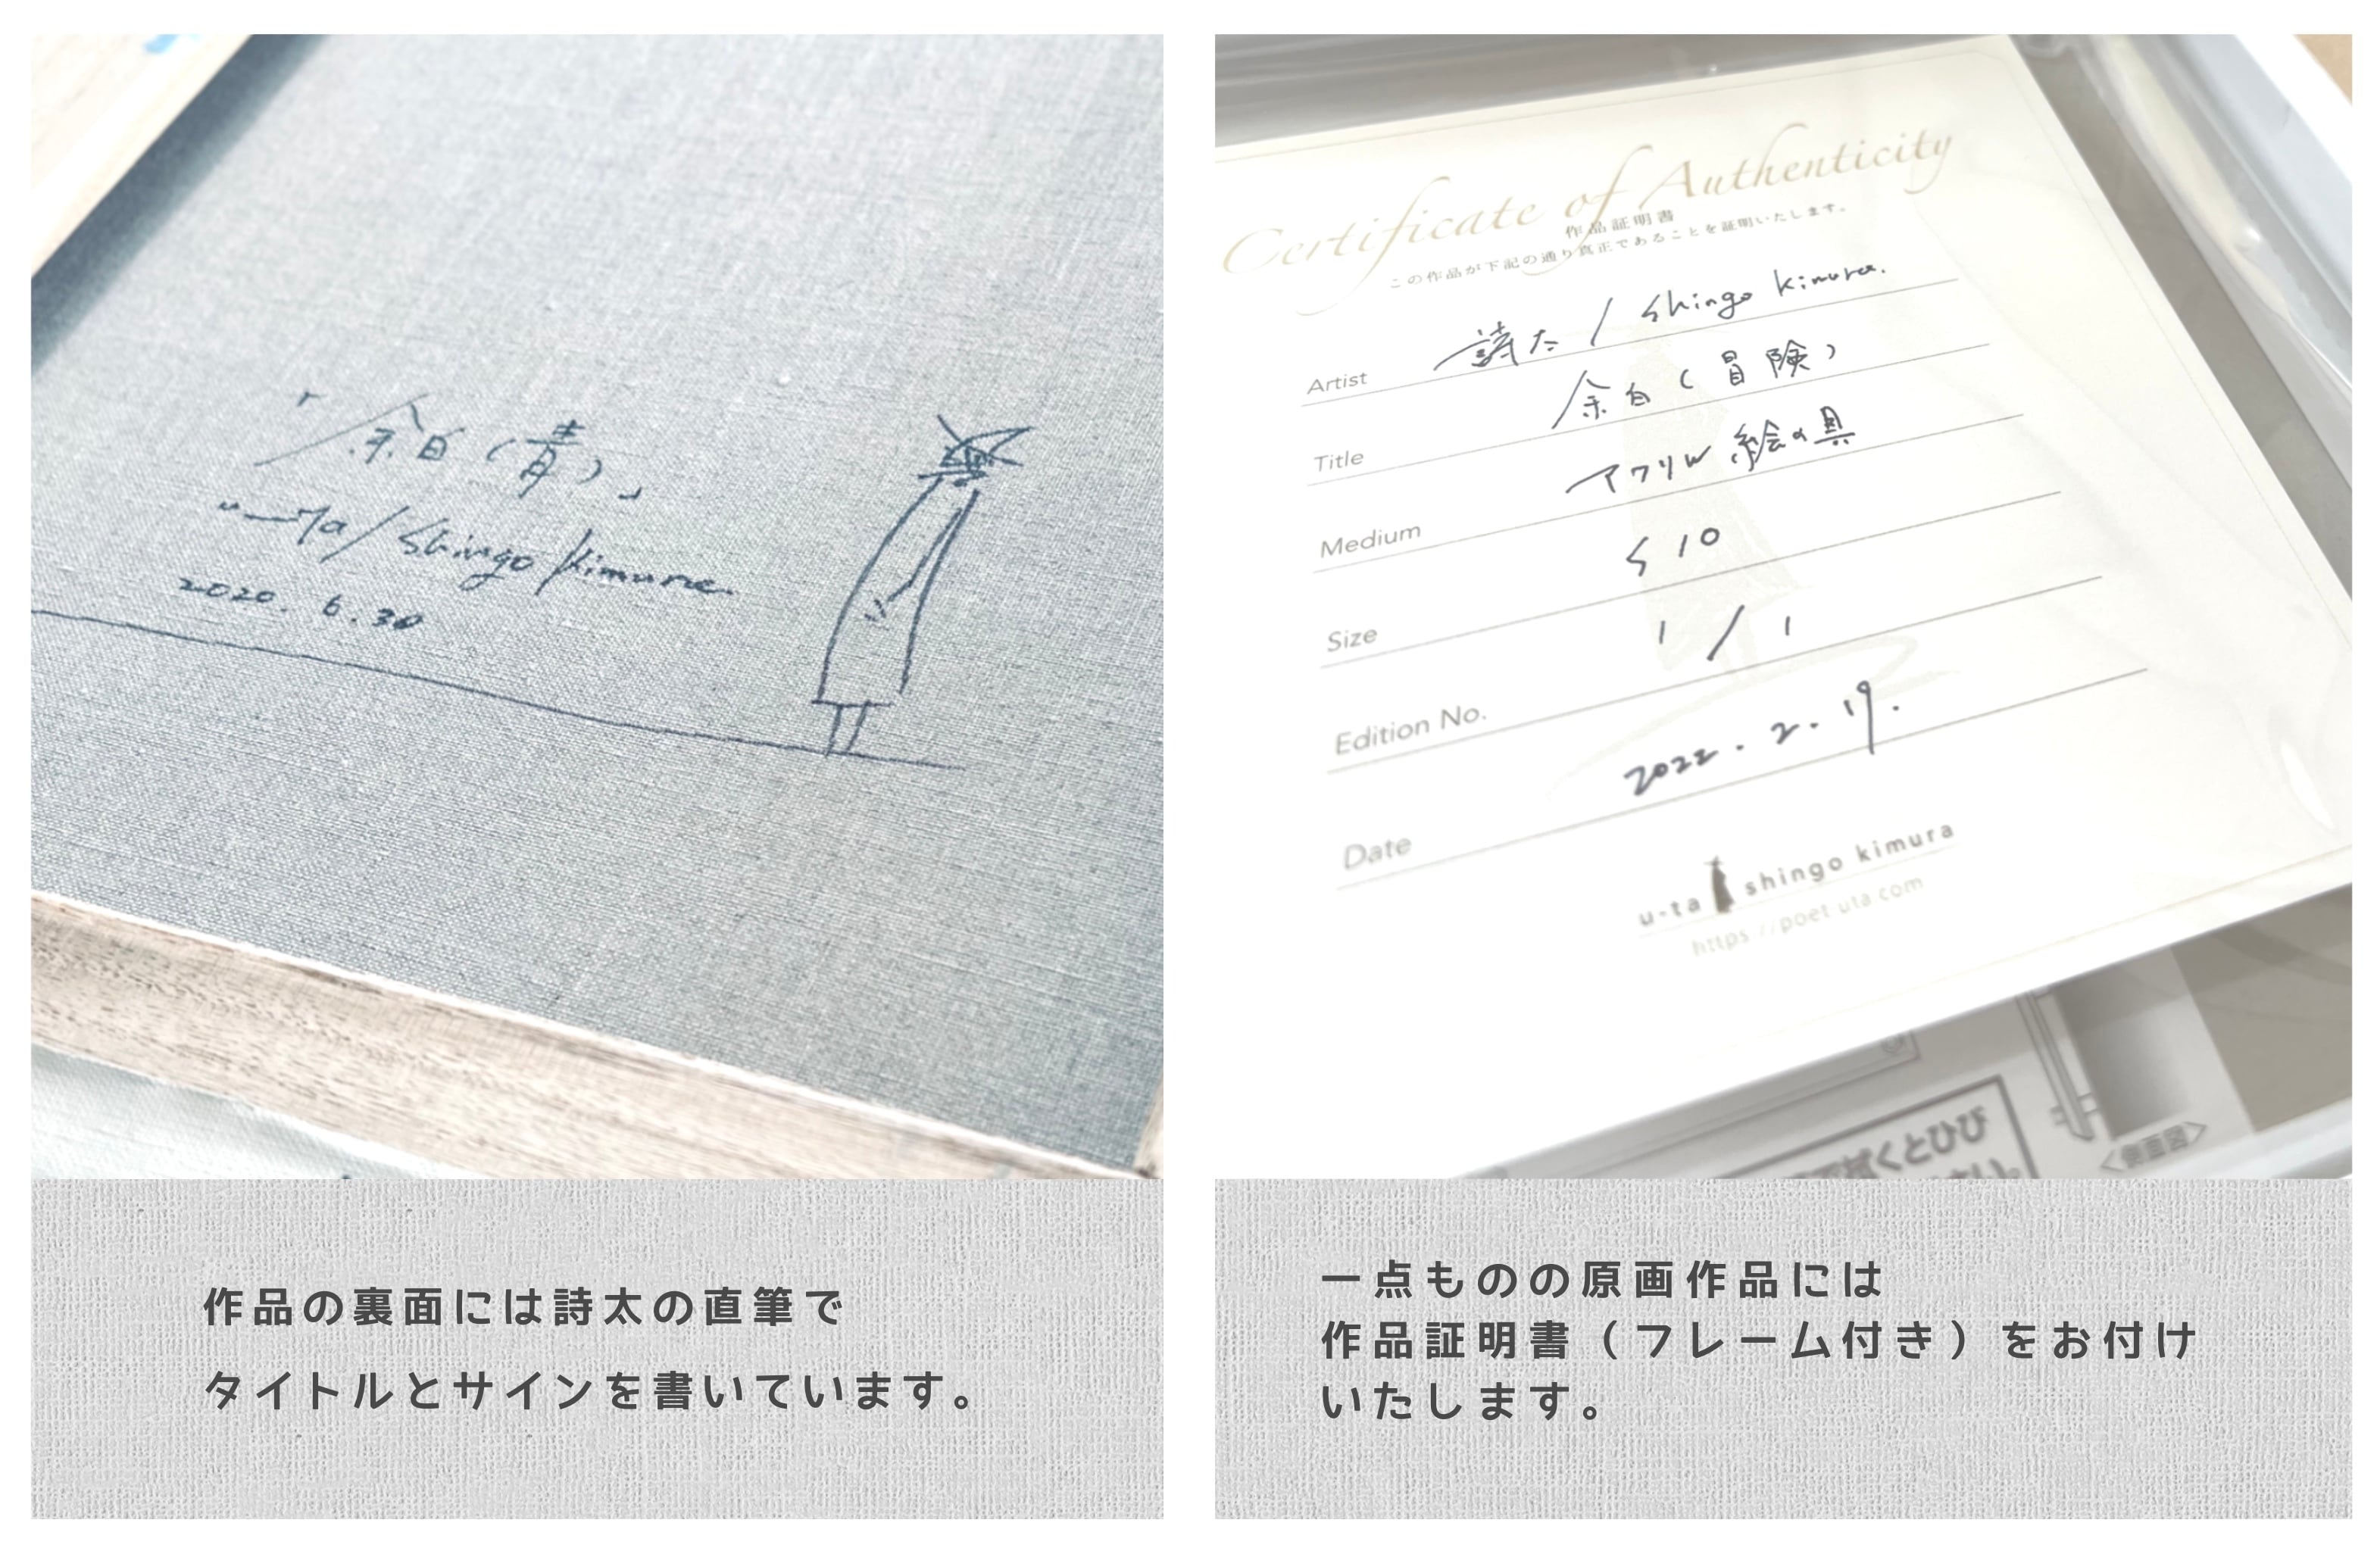 「余白（青）」
u-ta/Shingo Kimura
2020. 6.30
作品の裏面には詩太の直筆で
タイトルとサインを書いています。
Certificate of Authenticity
作品証明書
この作品が下記の通り真正であることを証明いたします。
Artist 詩太 / Shingo Kimura.
Title 余白（冒険）
Medium アクリル絵の具
Size S 10
Edition No. 1 / 1
Date 2022.2.19.
u-ta shingo kimura
https://poet-uta.com
くとひび
さい。
<側面図>
一点ものの原画作品には
作品証明書（フレーム付き）をお付け
いたします。